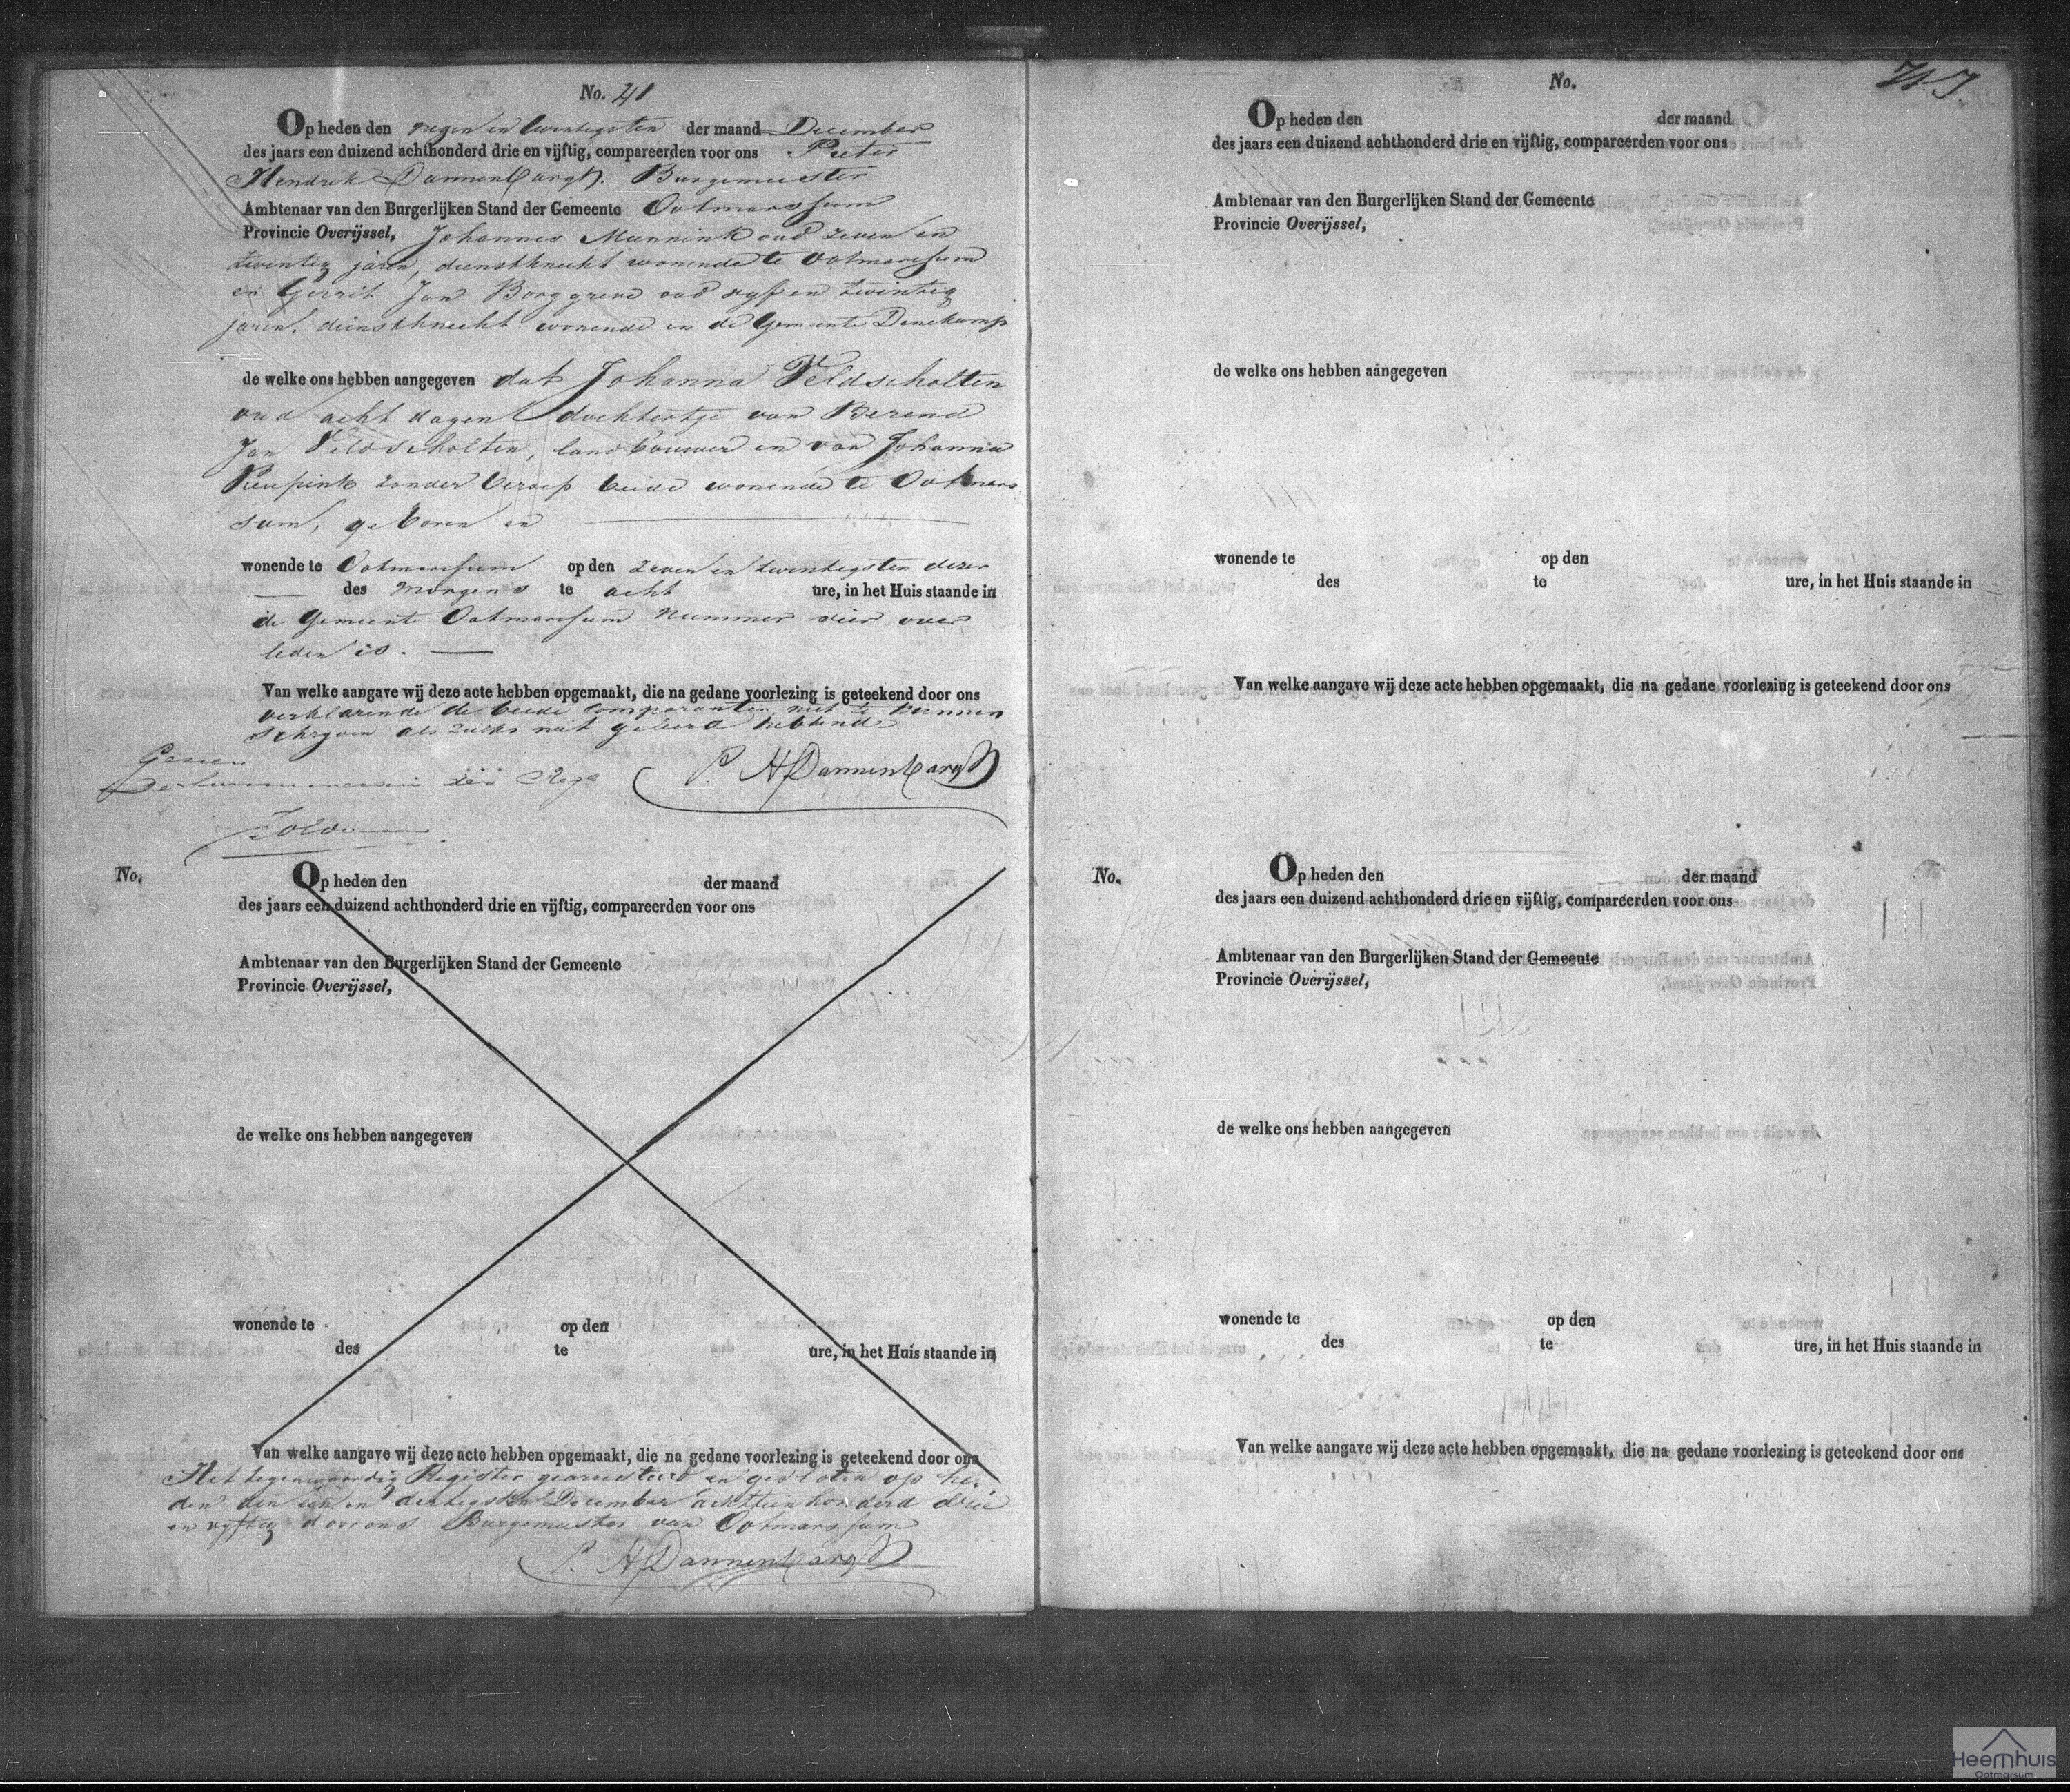 No. 41
Op heden den negen en twintigsten der maand December
des jaars een duizend achthonderd drie en vijftig, compareerden voor ons Pieter
Hendrik Dannenbargh. Burgemeester
Ambtenaar van den Burgerlijken Stand der Gemeente Ootmarssum
Provincie Overijssel, Johannes Munnink oud zeven en
twintig jaren, dienstknecht wonende te Ootmarssum
en Gerrit Jan Borggreve oud vyf en twintig
jaren, dienstknecht wonende in de Gemeente Denekamp
de welke ons hebben aangegeven dat Johanna Veldscholten
oud acht dagen dochtertje van Berend
Jan Veldscholten, landbouwer en van Johanna
zonder beroep beide wonende te Ootmars
sum, geboren en
wonende te Ootmarssum op den zeven en twintigsten dezer
des morgens te acht ure, in het Huis staande in
de Gemeente Ootmarssum Nummer vier over
leden is.
Van welke aangave wij deze acte hebben opgemaakt, die na gedane voorlezing is geteekend door ons
verklarende de beide Comparanten niet te kunnen
schryven als zulks niet geleerd hebbende
P. H Dannenbargh
Gezien
No.
Op heden den der maand
des jaars een duizend achthonderd drie en vijftig, compareerden voor ons
Ambtenaar van den Burgerlijken Stand der Gemeente
Provincie Overijssel,
de welke ons hebben aangegeven
wonende te op den
des te ure, in het Huis staande in
Van welke aangave wij deze acte hebben opgemaakt, die na gedane voorlezing is geteekend door ons
Het tegenwoordig Register gearresteerd en gesloten op he-
den den een en dertigsten December achttien honderd drie
en vyftig door ons Burgemeester van Ootmarssum
P. H Dannenbargh
No.
Op heden den der maand
des jaars een duizend achthonderd drie en vijftig, compareerden voor ons
Ambtenaar van den Burgerlijken Stand der Gemeente
Provincie Overijssel,
de welke ons hebben aangegeven
wonende te op den
des te ure, in het Huis staande in
Van welke aangave wij deze acte hebben opgemaakt, die na gedane voorlezing is geteekend door ons
No.
Op heden den der maand
des jaars een duizend achthonderd drie en vijftig, compareerden voor ons
Ambtenaar van den Burgerlijken Stand der Gemeente
Provincie Overijssel,
de welke ons hebben aangegeven
wonende te op den
des te ure, in het Huis staande in
Van welke aangave wij deze acte hebben opgemaakt, die na gedane voorlezing is geteekend door ons
Heemhuis
Ootmarsum